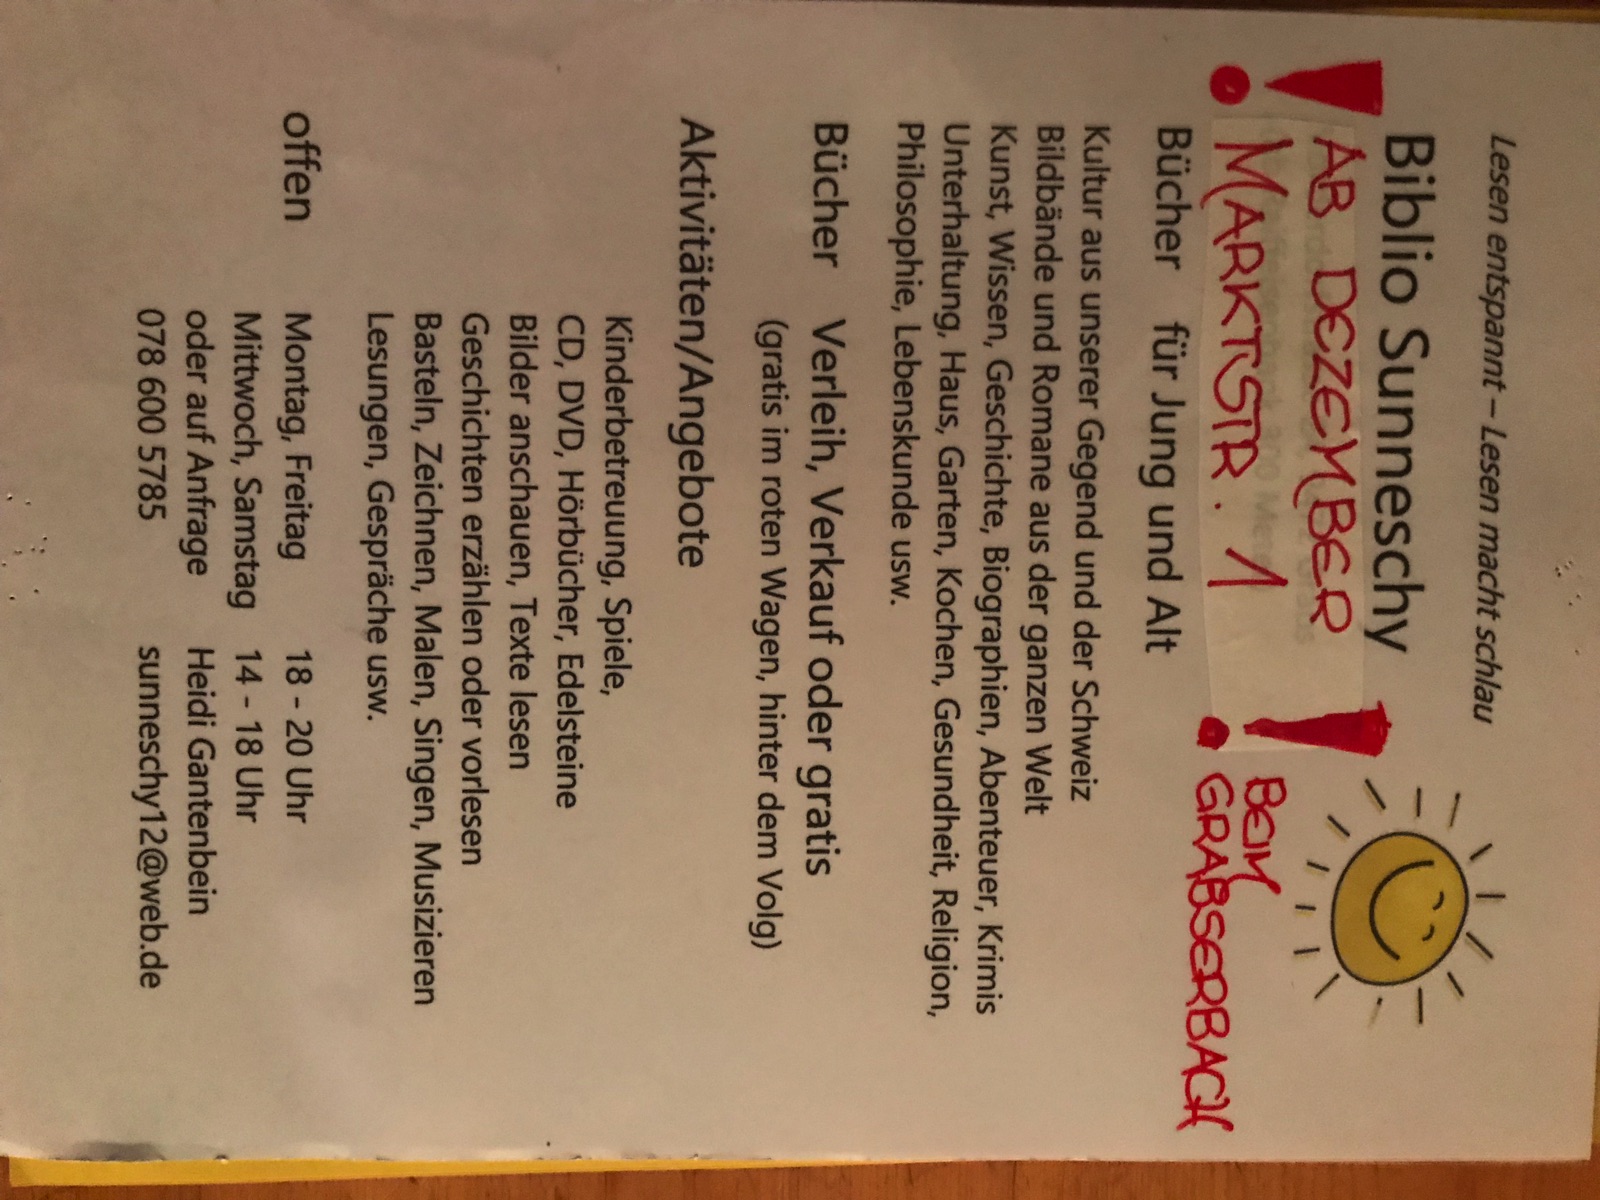 Lesen entspannt – Lesen macht schlau
Biblio Sunneschy
! AB DEZEMBER !
MARKTSTR. 1
BEIM
GRABSERBACH
Bücher für Jung und Alt
Kultur aus unserer Gegend und der Schweiz
Bildbände und Romane aus der ganzen Welt
Kunst, Wissen, Geschichte, Biographien, Abenteuer, Krimis
Unterhaltung, Haus, Garten, Kochen, Gesundheit, Religion,
Philosophie, Lebenskunde usw.
Bücher Verleih, Verkauf oder gratis
(gratis im roten Wagen, hinter dem Volg)
Aktivitäten/Angebote
Kinderbetreuung, Spiele,
CD, DVD, Hörbücher, Edelsteine
Bilder anschauen, Texte lesen
Geschichten erzählen oder vorlesen
Basteln, Zeichnen, Malen, Singen, Musizieren
Lesungen, Gespräche usw.
offen Montag, Freitag 18 - 20 Uhr
Mittwoch, Samstag 14 - 18 Uhr
oder auf Anfrage Heidi Gantenbein
078 600 5785 sunneschy12@web.de